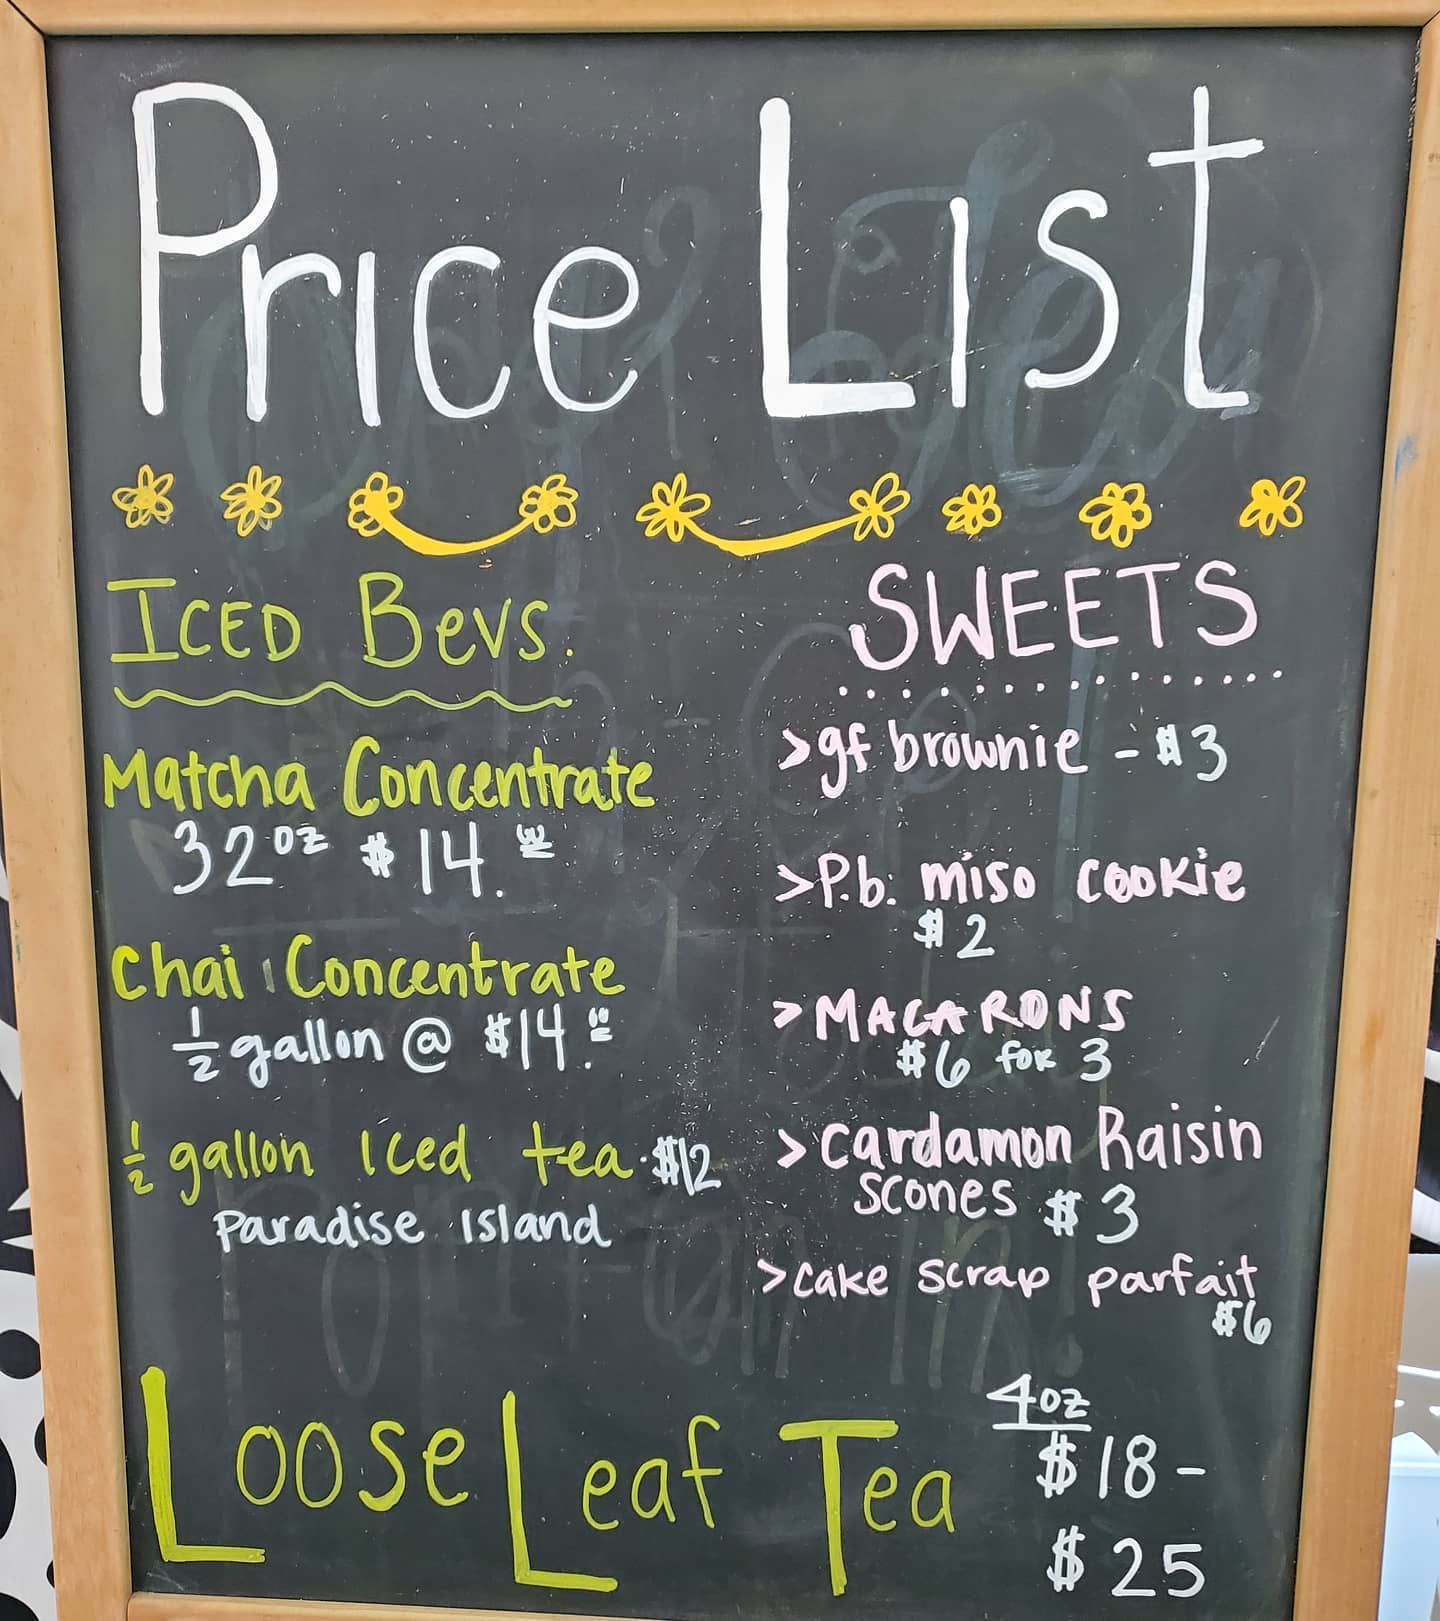 Price List
Iced Bevs.
Matcha Concentrate
32oz $14.00
Chai Concentrate
1/2 gallon @ $14.00
1/2 gallon Iced tea · $12
Paradise Island
SWEETS
>gf brownie - $3
>P.b. miso cookie
$2
>MACARONS
$6 for 3
>Cardamon Raisin
scones $3
>cake scrap parfait
$6
Loose Leaf Tea
4oz
$18 -
$25